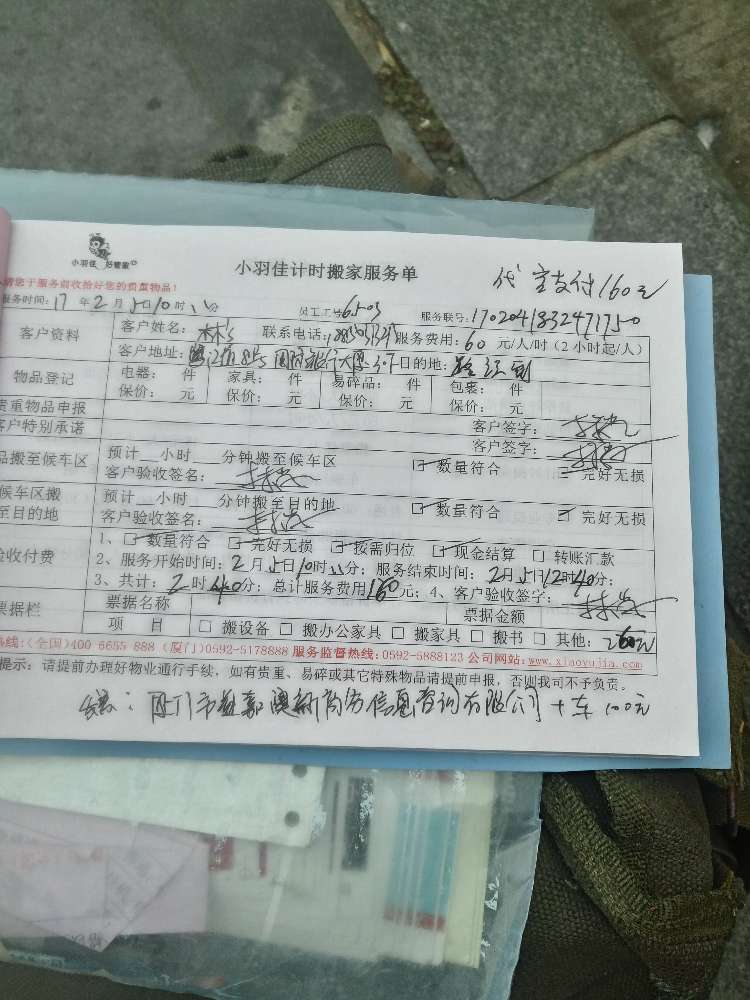 小羽佳 好管家
小羽佳计时搬家服务单
支付160元
请您于服务前收拾好您的贵重物品!
服务时间: 17 年 2 月 5日10时 分 员工工号6503 服务联号: 1702041832471750
客户资料 客户姓名: 林's 联系电话: 服务费用: 60 元/人/时 (2 小时起/人)
客户地址: 国际银行大厦 目的地:
物品登记 电器: 件 家具: 件 易碎品: 件 包裹: 件
保价: 元 保价: 元 保价: 元 保价: 元
贵重物品申报 客户签字:
客户特别承诺 客户签字:
品搬至候车区 预计 小时 分钟搬至候车区 数量符合 完好无损
客户验收签名:
候车区搬至目的地 预计 小时 分钟搬至目的地 数量符合 完好无损
客户验收签名:
验收付费 1、 数量符合 完好无损 按需归位 现金结算 转账汇款
2、服务开始时间: 2月5日10时 分; 服务结束时间: 2月5日12时40分;
3、共计: 2时40分; 总计服务费用160元; 4、客户验收签字:
票据栏 票据名称 票据金额
项 目 搬设备 搬办公家具 搬家具 搬书 其他: 260元
热线:(全国)400 6655 888 (厦门)0592-5178888 服务监督热线:0592-5888123 公司网站:www.xiaoyujia.com
提示: 请提前办理好物业通行手续, 如有贵重、易碎或其它特殊物品请提前申报, 否则我司不予负责。
厦门市 商务信息咨询有限公司 +车 100元